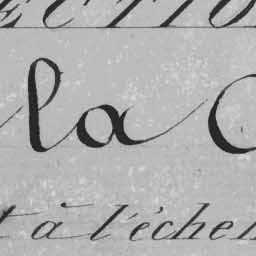 ECTIO
la C
t à l'échel